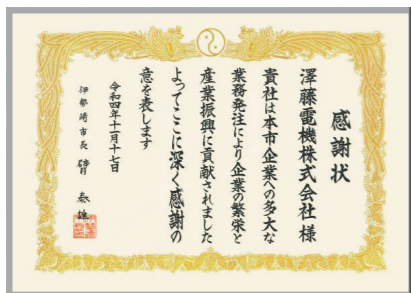 感謝状
澤藤電機株式会社様
貴社は本市企業への多大な
業務発注により企業の繁栄と
産業振興に貢献されました
よってここに深く感謝の
意を表します
令和四年十一月十七日
伊勢崎市長 臂 泰雄